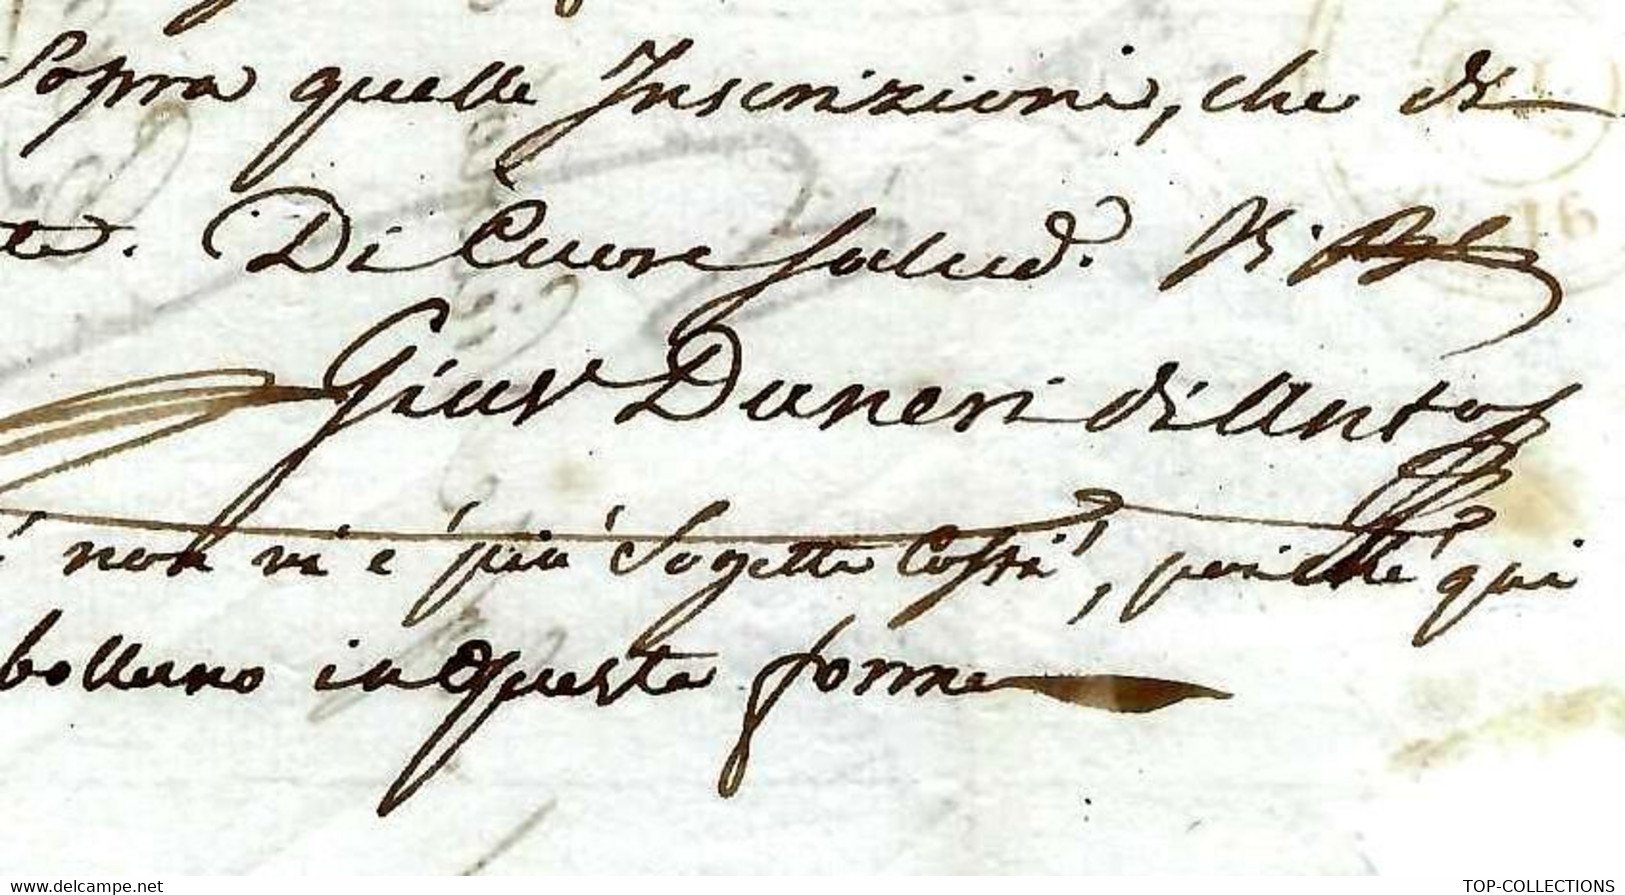 Sopra quelle Inscrizioni, che di
te. Di Cuore Salud.
Gius Daneri di Anto
non vi è più Sogetta Costì, perche qui
bollano in questa forma
www.delcampe.net
TOP-COLLECTIONS